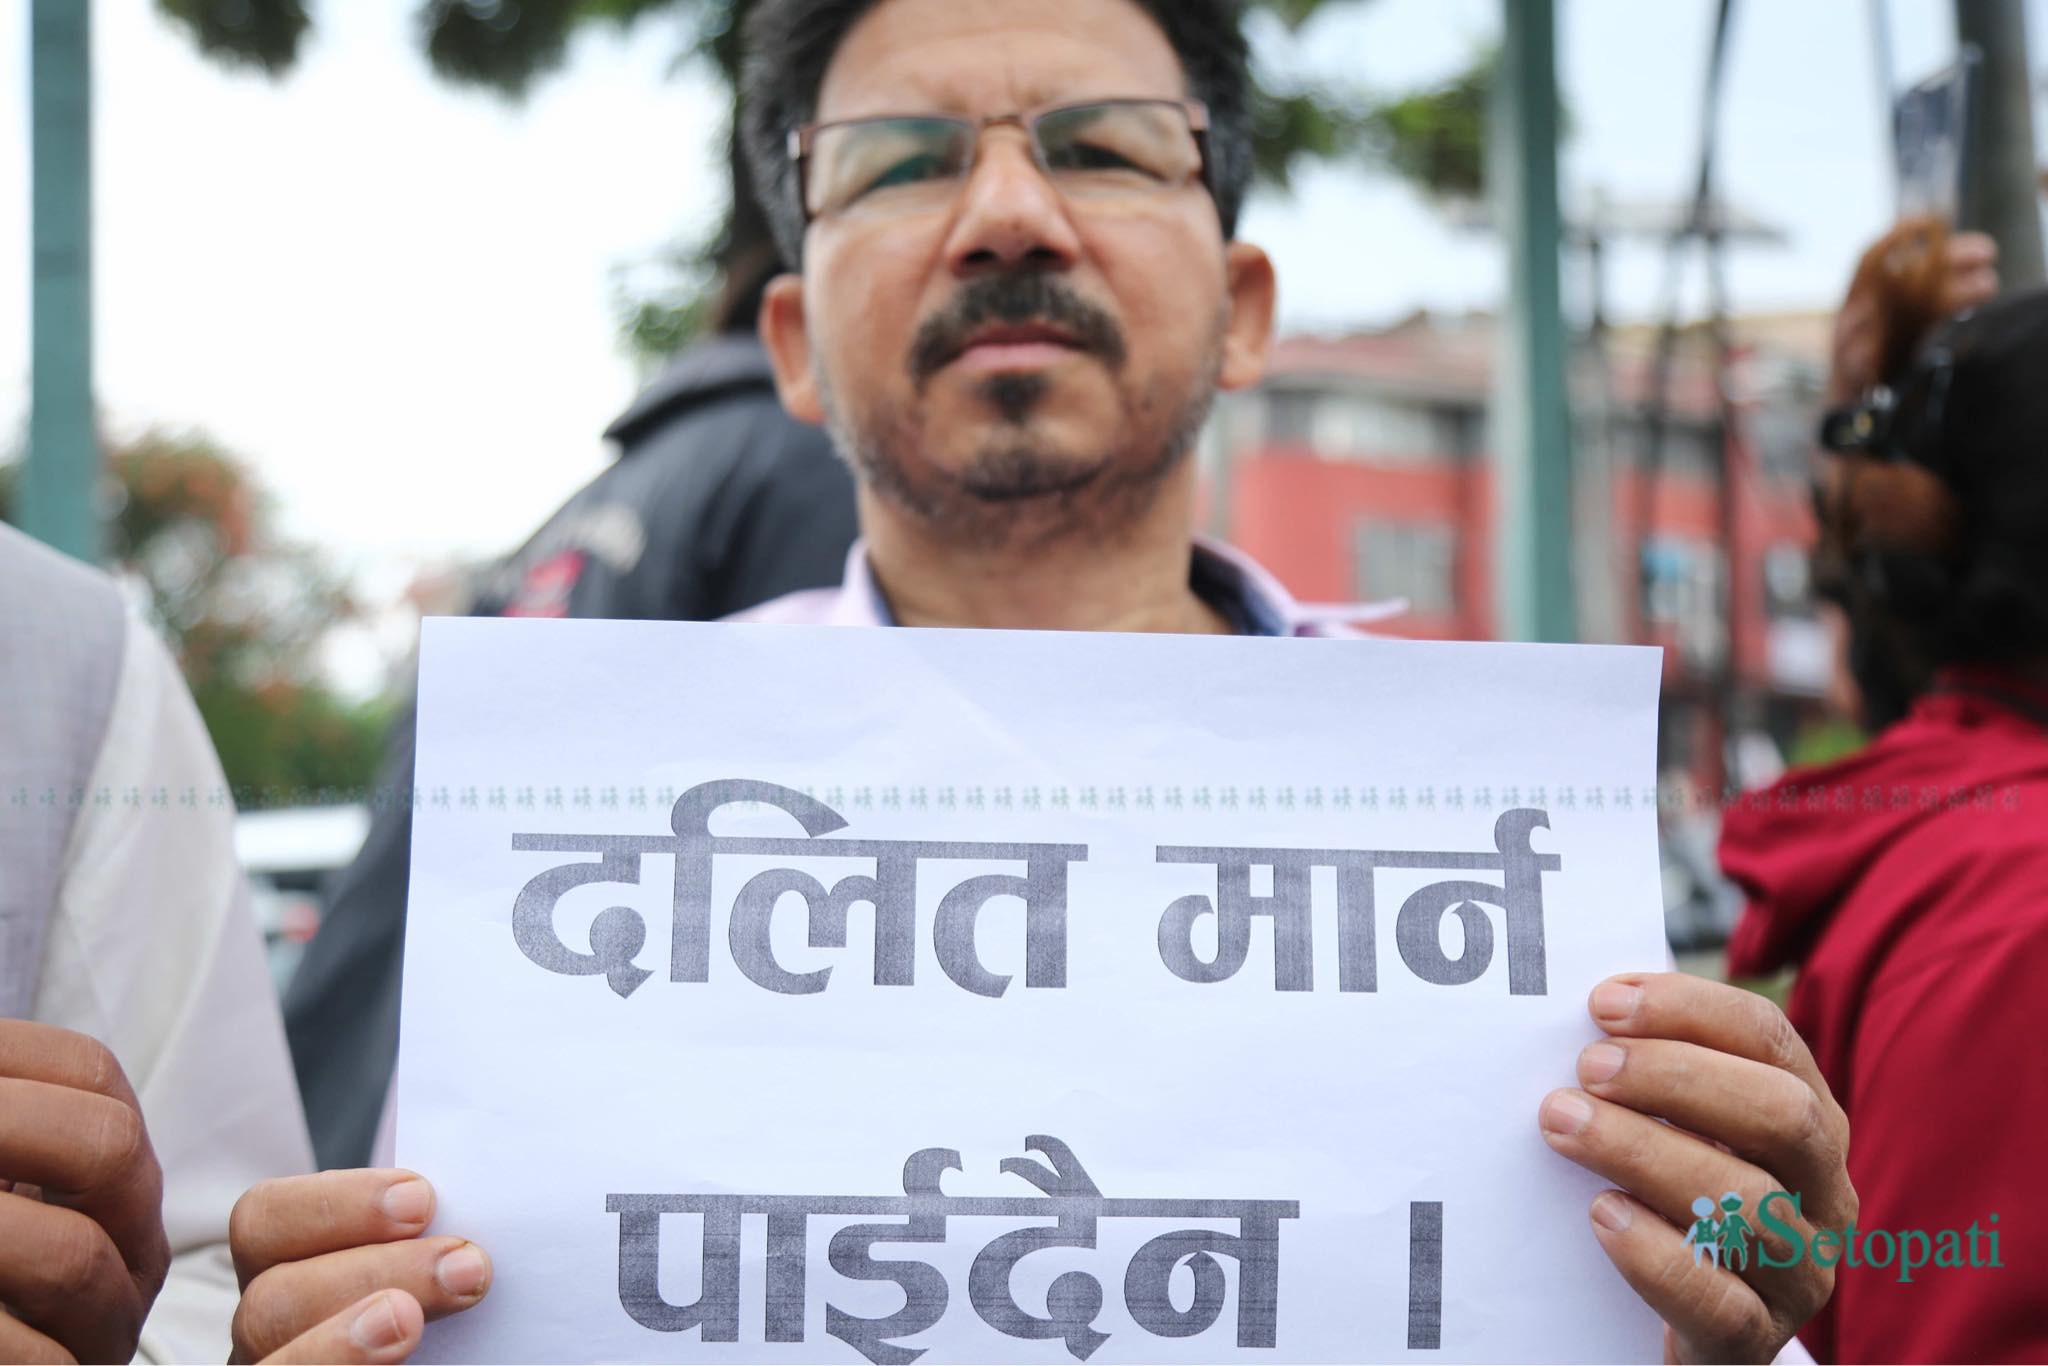 दलित मार्न
पाईदैन ।
Setopati